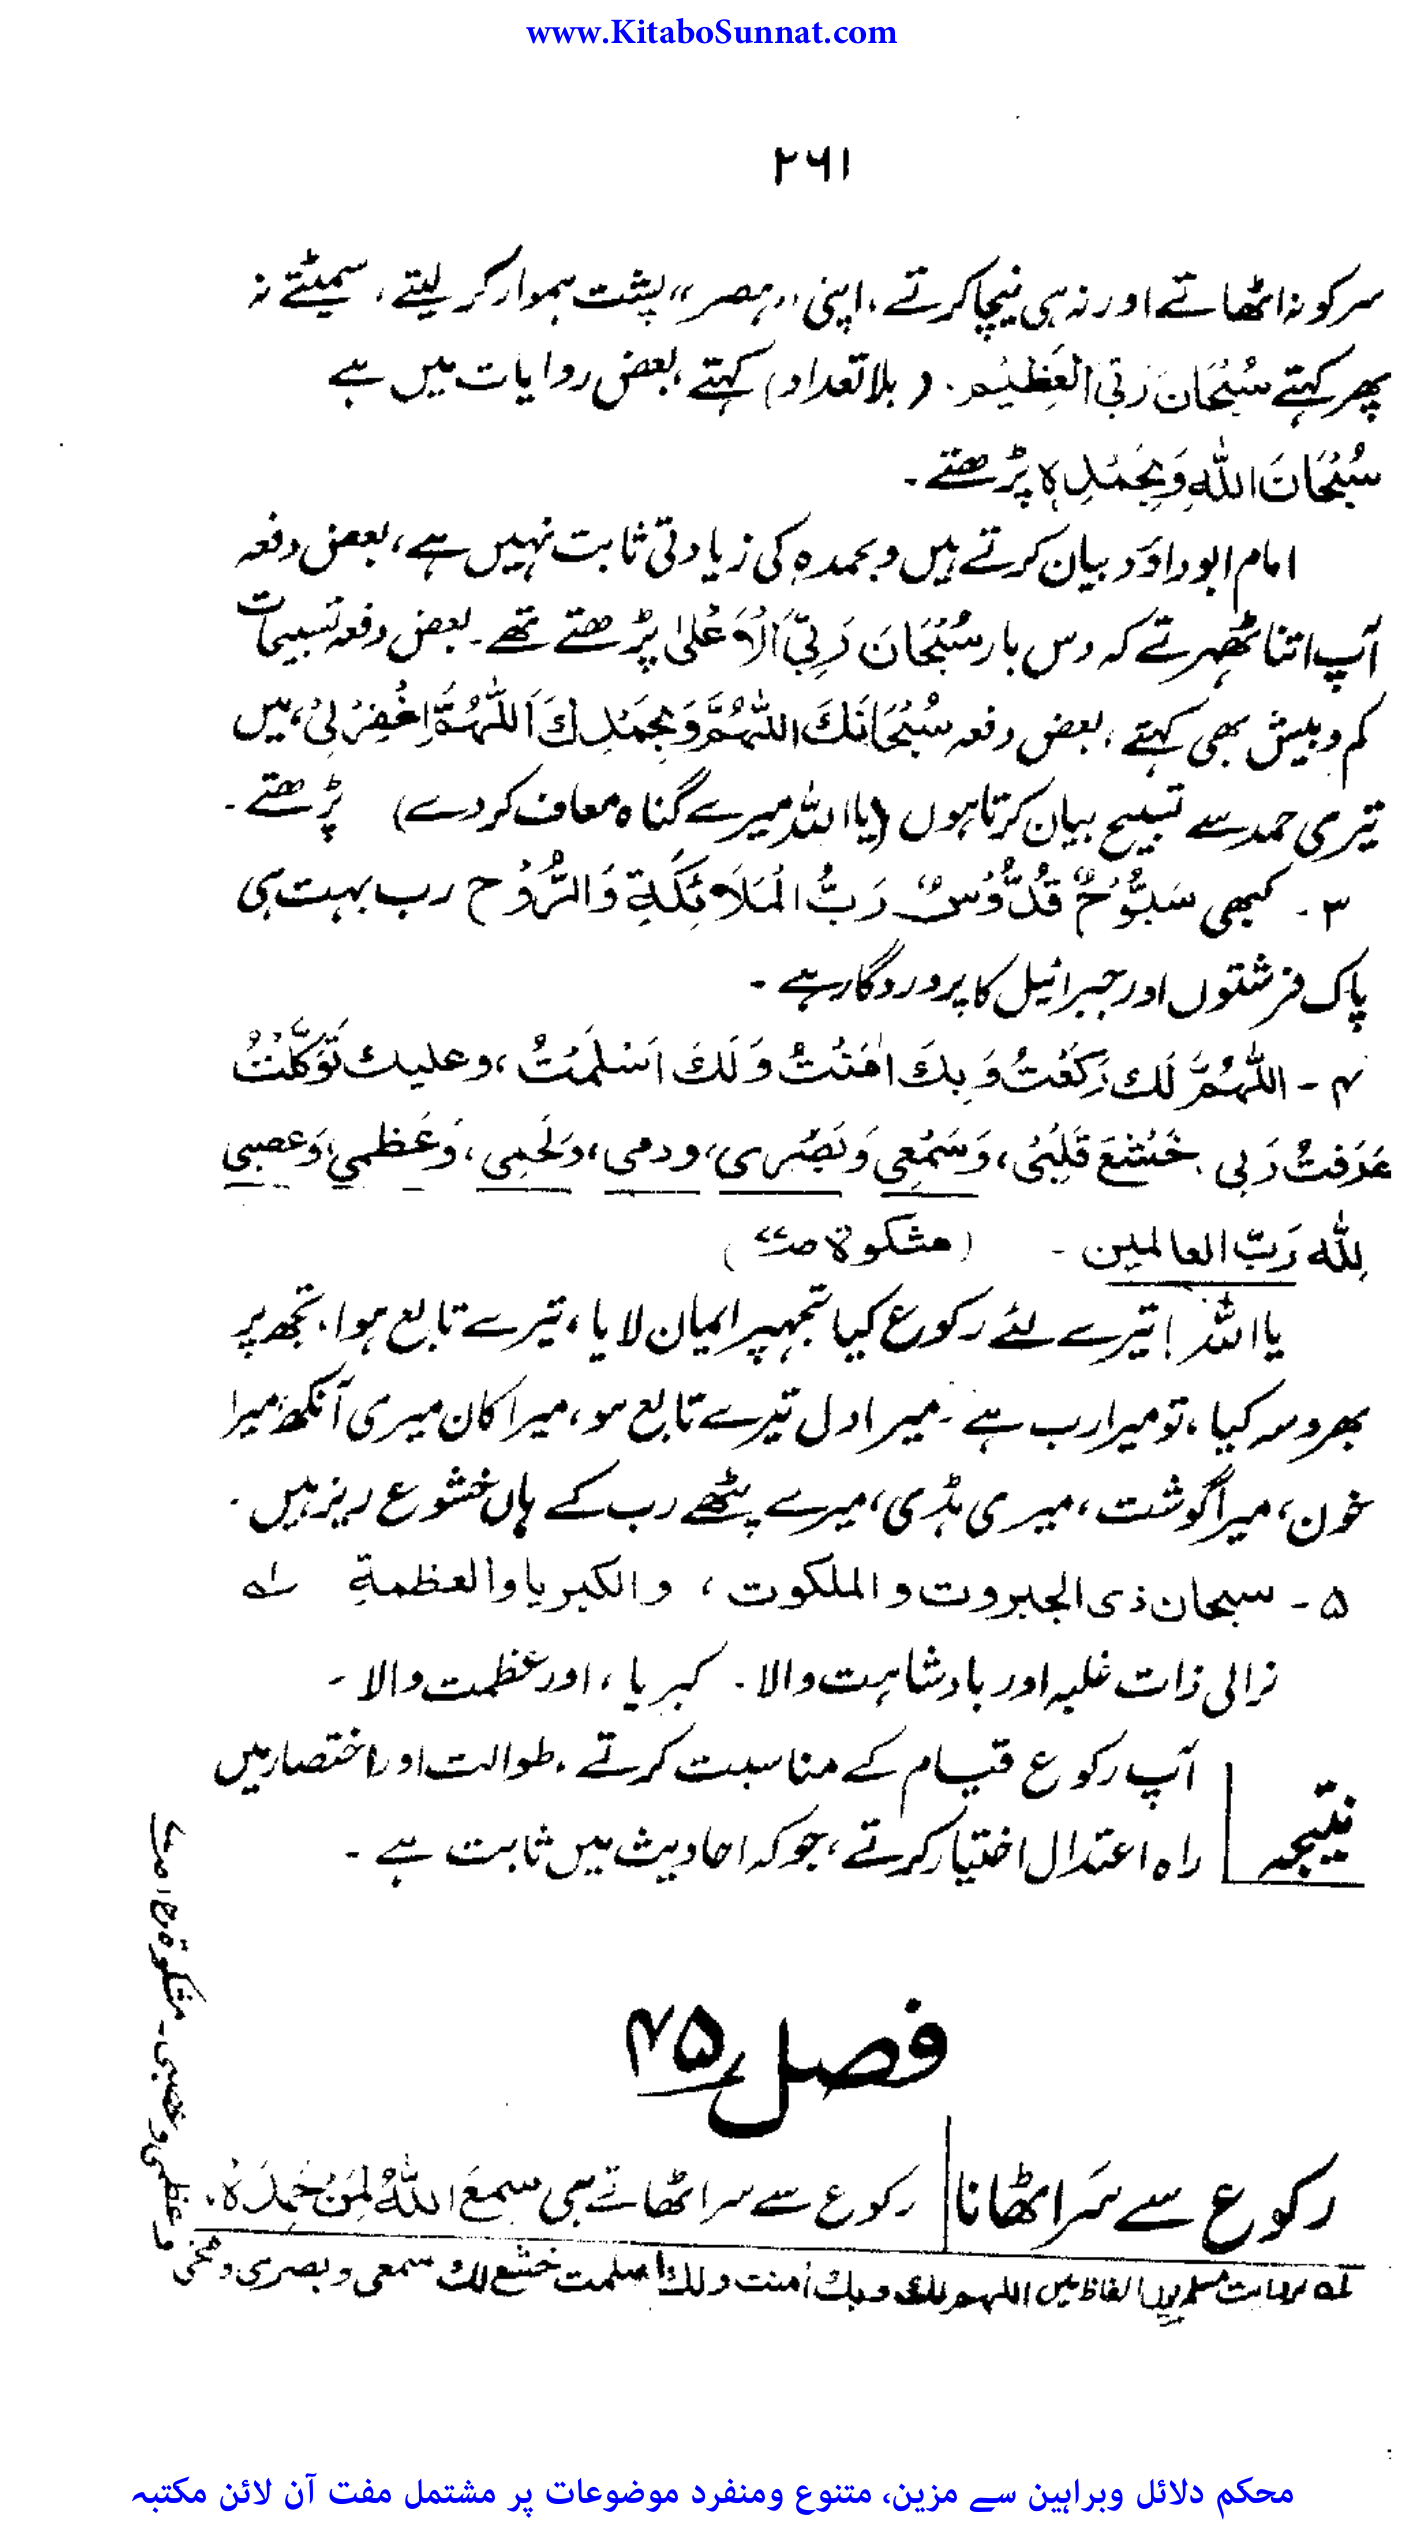 www.KitaboSunnat.com
۲۶۱
سر کو نہ اٹھاتے اور نہ ہی نیچا کرتے، اپنی "ہصر" پشت ہموار کر لیتے، سمیٹتے نہ
پھر کہتے سُبْحَانَ رَبِّیَ الْعَظِیْم۔ (بلا تعداد) کہتے، بعض روایات میں ہے
سُبْحَانَ اللّٰهِ وَبِحَمْدِہٖ پڑھتے۔
امام ابوداؤد بیان کرتے ہیں وبحمدہ کی زیادتی ثابت نہیں ہے، بعض دفعہ
آپ اتنا ٹھہرتے کہ دس بار سُبْحَانَ رَبِّیَ الْاَعْلیٰ پڑھتے تھے۔ بعض دفعہ تسبیحات
کم و بیش بھی کہتے، بعض دفعہ سُبْحَانَكَ اللّٰهُمَّ وَبِحَمْدِكَ اَللّٰهُمَّ اغْفِرْلِیْ، میں
تیری حمد سے تسبیح بیان کرتا ہوں (یا اللہ میرے گناہ معاف کردے) پڑھتے۔
۳۔ کبھی سَبُّوْحٌ قُدُّوْسٌ رَبُّ الْمَلَائِكَةِ وَالرُّوْح رب بہت ہی
پاک فرشتوں اور جبرائیل کا پروردگار ہے۔
۴۔ اللّٰهُمَّ لَك رَكَعْتُ وَبِكَ اٰمَنْتُ وَلَكَ اَسْلَمْتُ، وعلیك تَوَكَّلْتُ
عَرَفتُ رَبِی خَشَعَ قَلْبِیْ، وَسَمْعِی وَبَصْرِی، ودمی، وَلَحْمِی، وَعَظمی، وَعصبی
لِلّٰه رَبِّ العالمین۔ (مشکوٰۃ ص۷۷)
یا اللہ! تیرے لئے رکوع کیا تجہپر ایمان لایا، تیرے تابع ہوا، تجھ پر
بھروسہ کیا، تو میرا رب ہے۔ میرا دل تیرے تابع ہو، میرا کان میری آنکھ، میرا
خون، میرا گوشت، میری ہڈی، میرے پٹھے رب کے ہاں خشوع ریز ہیں۔
۵۔ سبحان ذی الجبروت والملكوت، والكبریا والعظمة لہ
نرالی ذات غلبہ اور بادشاہت والا۔ کبریا، اور عظمت والا۔
نتیجہ آپ رکوع قیام کے مناسبت کرتے، طوالت اور اختصار میں
راہ اعتدال اختیار کرتے، جو کہ احادیث میں ثابت ہے۔
فصل ۴۵
رکوع سے سَر اٹھانا رکوع سے سر اٹھاتے ہی سمِعَ اللّٰهُ لِمَنْ حَمِدَہُ۔
لہ روایت مسلم میں یوں الفاظ ہیں اللہم لك وبك اٰمنت ولك اسلمت خشع لك سمعی وبصری ومخی
وعظمی وعصبی۔ مشکوٰۃ ج۱،
محکم دلائل وبراہین سے مزین، متنوع ومنفرد موضوعات پر مشتمل مفت آن لائن مکتبہ